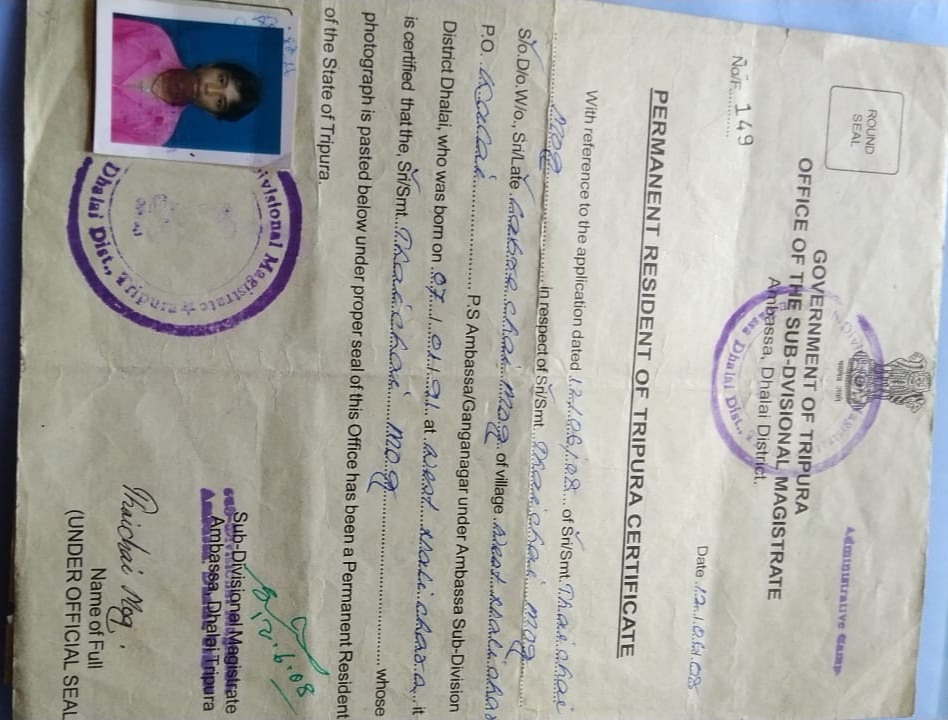 ROUND
SEAL
Administrative Camp
GOVERNMENT OF TRIPURA
OFFICE OF THE SUB-DVISIONAL MAGISTRATE
Ambassa, Dhalai District.
No/F. 149
Date 12.06.08
PERMANENT RESIDENT OF TRIPURA CERTIFICATE
With reference to the application dated 12/06/08 of Sri/Smt. Thaichai
Mog in respect of Sri/Smt. Thaichai Mog
S/o.D/o.W/o., Sri/Late chai Mog of village West
P.O. P.S Ambassa/Ganganagar under Ambassa Sub-Division
District Dhalai, who was born on 07/01/91 at West it
is certified that the, Sri/Smt. Thaichai Mog whose
photograph is pasted below under proper seal of this Office has been a Permanent Resident
of the State of Tripura.
visional Magistrate
Dhalai Dist.,
Sub-Divisional Magistrate
Ambassa, Dhalai Tripura
Thaichai Mog
Name of Full
(UNDER OFFICIAL SEAL